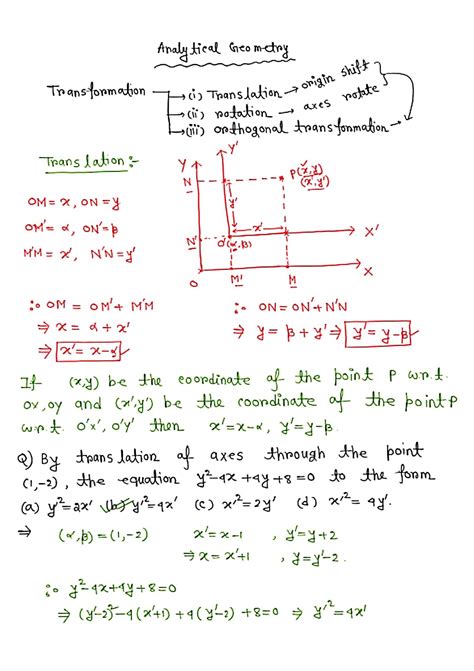 Analytical Geometry
Transformation → (i) Translation → origin shift
→ (ii) rotation → axes rotate
→ (iii) orthogonal transformation
Translation :-
Y Y'
N P(x,y)
(x',y')
OM = x, ON = y
OM' = α, ON' = β
M'M = x', N'N = y'
y' x'
N' O'(α,β) X'
O M' M X
∵ OM = OM' + M'M
⇒ x = α + x'
⇒ x' = x-α
∵ ON = ON' + N'N
⇒ y = β + y' ⇒ y' = y-β
If (x,y) be the coordinate of the point P w.r.t.
OX, OY and (x',y') be the coordinate of the point P
w.r.t. O'X', O'Y' then x' = x-α, y' = y-β.
Q) By translation of axes through the point
(1,-2), the equation y²-4x+4y+8=0 to the form
(a) y'²=2x' (b) y'²=4x' (c) x'²=2y' (d) x'²=4y'.
⇒ (α,β) = (1,-2) x' = x-1 , y' = y+2
⇒ x = x'+1 , y = y'-2.
∵ y²-4x+4y+8=0
⇒ (y'-2)²-4(x'+1)+4(y'-2)+8=0 ⇒ y'²=4x'